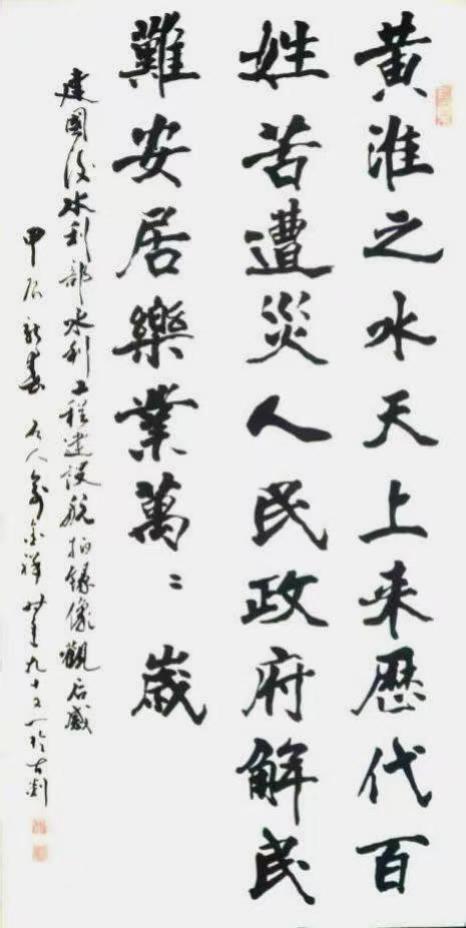 黄淮之水天上来歷代百
姓苦遭災人民政府解民
難安居樂業萬〻歲
建國後水利部水利工程建设航拍錄像觀后感
甲辰新春 金祥 九十又一於古